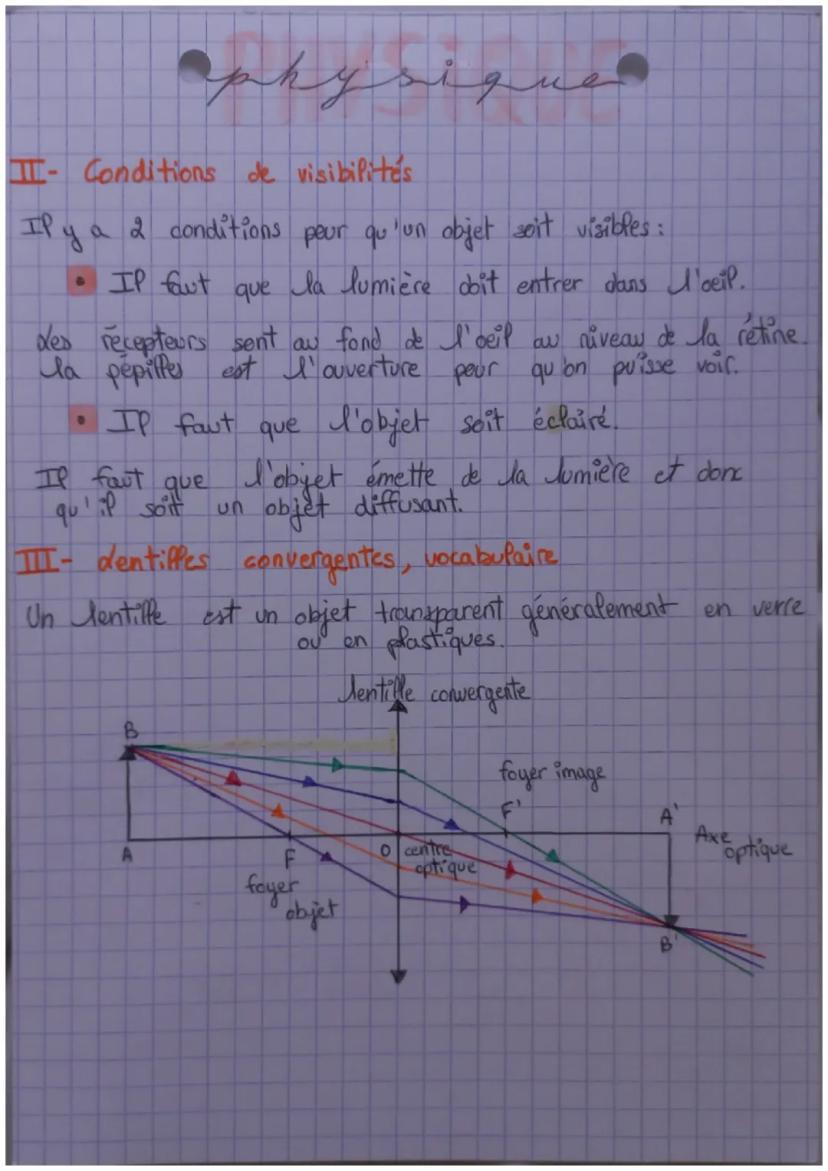 PHYSIQUE
physique
II- Conditions de visibilités
Il y a 2 conditions pour qu'un objet soit visibles :
• Il faut que la lumière doit entrer dans l'oeil.
Les récepteurs sont au fond de l'oeil au niveau de la rétine.
la pépilles est l'ouverture pour qu'on puisse voir.
• Il faut que l'objet soit éclairé.
Il faut que l'objet émette de la lumière et donc
qu'il soit un objet diffusant.
III- Lentilles convergentes, vocabulaire
Un lentille est un objet transparent généralement en verre
ou en plastiques.
lentille convergente
B
foyer image
F'
A'
Axe optique
A
F
O centre optique
foyer objet
B'